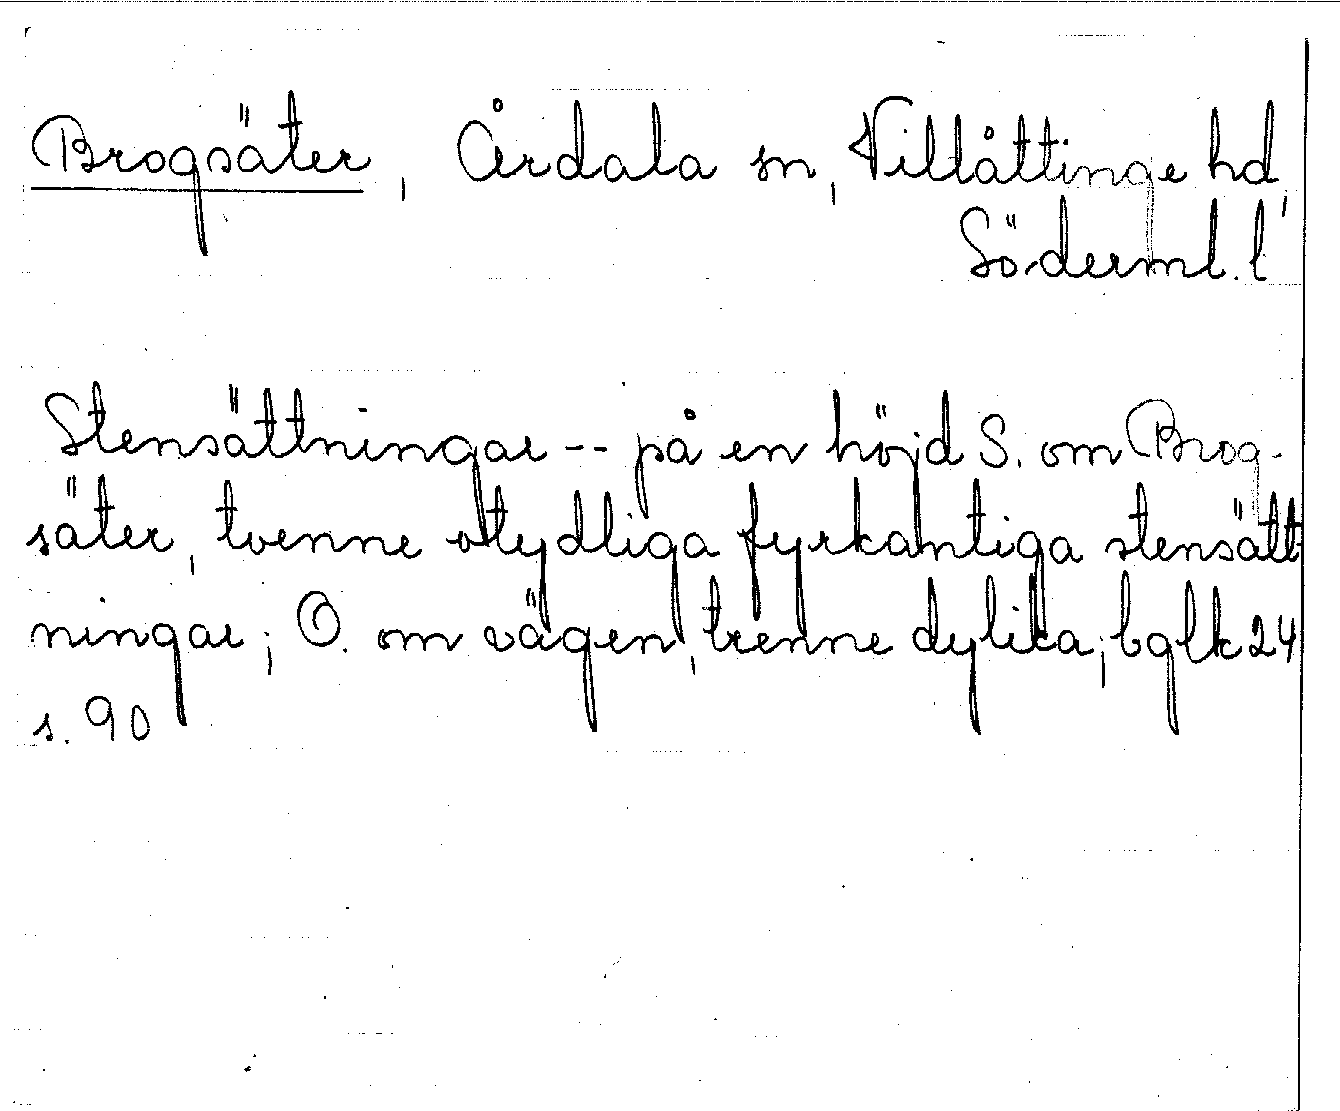 Brogsäter, Årdala sn, Villåttinge hd,
Söderml. l
Stensättningar -- på en höjd S. om Brog-
säter, tvenne otydliga fyrkantiga stensätt-
ningar; O. om vägen, trenne dylika; bglk 24
s. 90